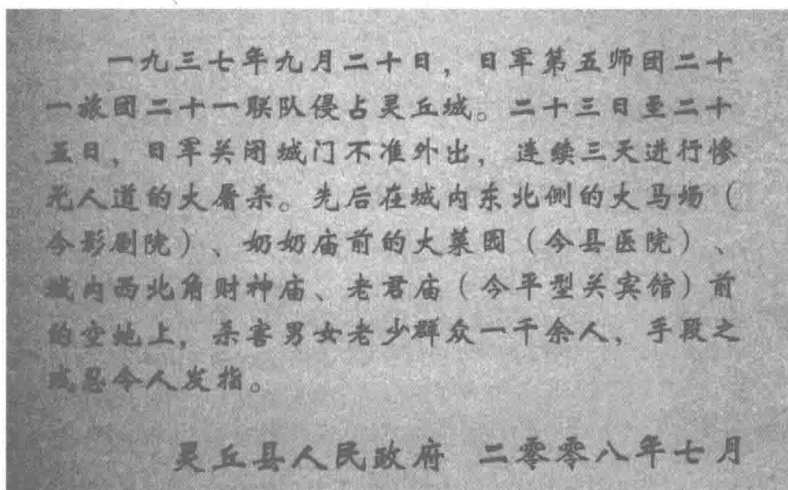 一九三七年九月二十日，日军第五师团二十
一旅团二十一联队侵占灵丘城。二十三日至二十
五日，日军关闭城门不准外出，连续三天进行惨
无人道的大屠杀。先后在城内东北侧的大马场（
今影剧院）、奶奶庙前的大菜园（今县医院）、
城内西北角财神庙、老君庙（今平型关宾馆）前
的空地上，杀害男女老少群众一千余人，手段之
残忍令人发指。
灵丘县人民政府 二零零八年七月